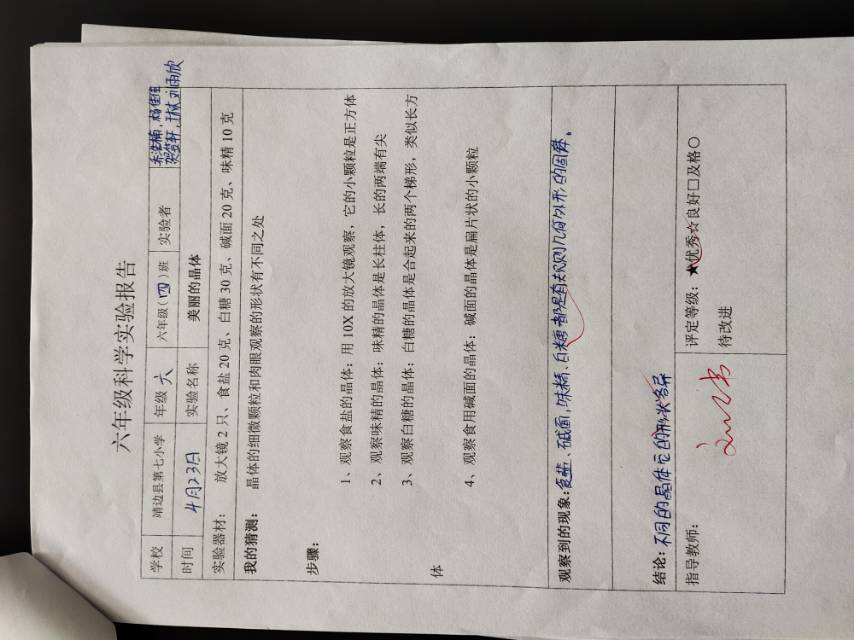 六年级科学实验报告
学校 靖边县第七小学 年级 六 六年级(四)班 实验者
时间 4月23日 实验名称 美丽的晶体
实验器材: 放大镜2只、食盐20克、白糖30克、碱面20克、味精10克
我的猜测: 晶体的细微颗粒和肉眼观察的形状有不同之处
步骤:
1、观察食盐的晶体:用10X的放大镜观察,它的小颗粒是正方体
2、观察味精的晶体:味精的晶体是长柱体,长的两端有尖
3、观察白糖的晶体:白糖的晶体是合起来的两个梯形,类似长方
体
4、观察食用碱面的晶体:碱面的晶体是扁片状的小颗粒
观察到的现象:食盐、碱面,味精、白糖都是有规则几何外形的固体。
结论:不同的晶体它的形状各异
指导教师:
评定等级:★优秀☆良好□及格○
待改进